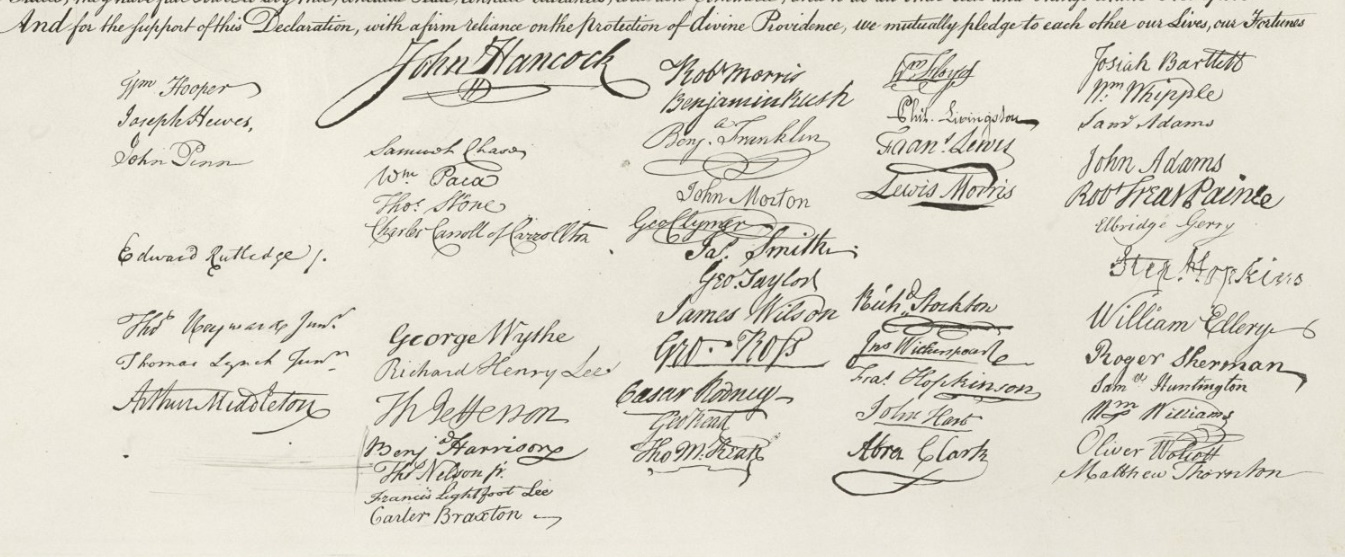 And for the support of this Declaration, with a firm reliance on the protection of divine Providence, we mutually pledge to each other our Lives, our Fortunes
Wm Hooper
Joseph Hewes,
John Penn
Edward Rutledge /.
Thos Heyward Junr.
Thomas Lynch Junr.
Arthur Middleton
John Hancock
Samuel Chase
Wm Paca
Thos Stone
Charles Carroll of Carrollton
George Wythe
Richard Henry Lee
Th Jefferson
Benja Harrison
Thos Nelson jr.
Francis Lightfoot Lee
Carter Braxton
Robt Morris
Benjamin Rush
Benja. Franklin
John Morton
Geo Clymer
Jas. Smith
Geo. Taylor
James Wilson
Geo. Ross
Caesar Rodney
Geo Read
Tho M:Kean
Wm Floyd
Phil. Livingston
Frans. Lewis
Lewis Morris
Richd. Stockton
Jno Witherspoon
Fras. Hopkinson
John Hart
Abra Clark
Josiah Bartlett
Wm Whipple
Saml Adams
John Adams
Robt Treat Paine
Elbridge Gerry
Step. Hopkins
William Ellery
Roger Sherman
Saml Huntington
Wm Williams
Oliver Wolcott
Matthew Thornton